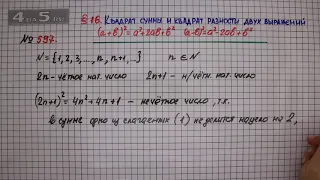 4 на 5 ru
§ 16. Квадрат суммы и квадрат разности двух выражений
(a+b)²=a²+2ab+b² (a-b)²=a²-2ab+b²
№ 597.
N = {1, 2, 3, ..., n, n+1, ...} n ∈ N
2n - чётное нат. число 2n+1 - н/чётн. нат. ч.
(2n+1)² = 4n²+4n+1 - нечётное число, т.к.
в сумме одно из слагаемых (1) не делится нацело на 2,